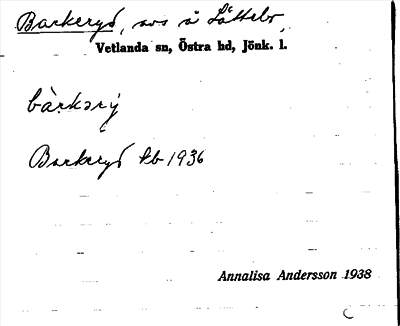 Barkeryd, avs å Låttebo,
Vetlanda sn, Östra hd, Jönk. l.
bàrkərý
Barkeryd kb 1936
Annalisa Andersson 1938